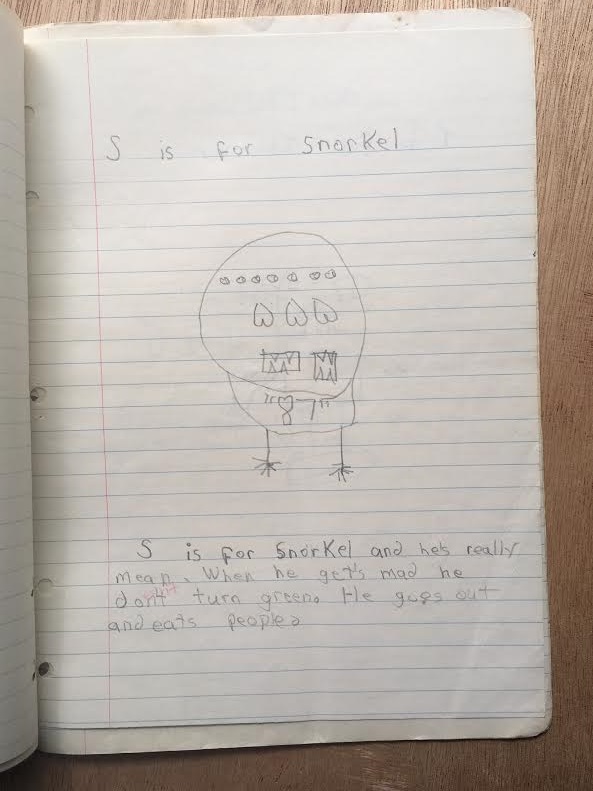 S is for Snorkel
"87"
S is for Snorkel and he's really
mean. When he get's mad he
don't turn green. He goes out
and eats people.